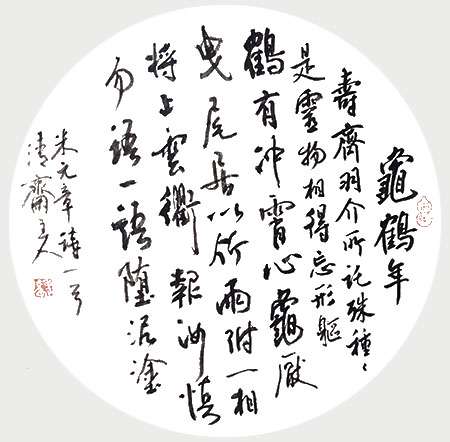 龜鶴年
壽齊羽介所託殊種〻
是靈物相得忘形軀
鶴有冲霄心龜厭
曳尾居以竹兩附口相
將上雲衢報汝慎
勿語一語墮泥塗
米元章詩一首
清齋主人